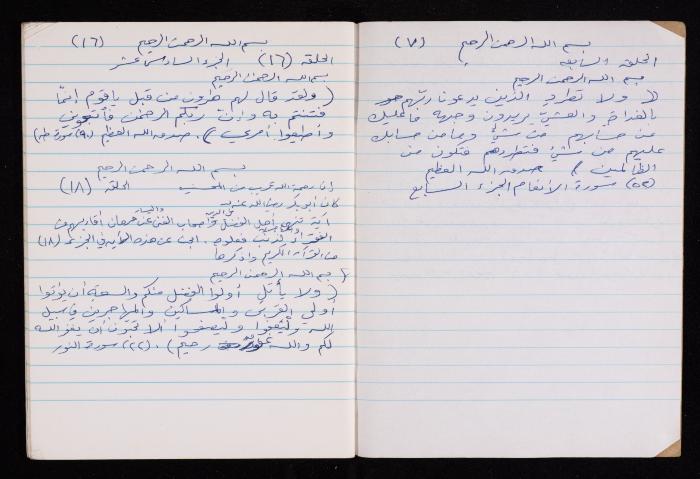 بسم الله الرحمن الرحيم (٧)
الحلقة السابعة
بسم الله الرحمن الرحيم
(( ولا تطرد الذين يدعون ربّهم
بالغداة والعشيّ يريدون وجهه ما عليك
من حسابهم من شيءٍ وما من حسابك
عليهم من شيءٍ فتطردهم فتكون من
الظالمين )) صدق الله العظيم
(٥٢) سورة الأنعام الجزء السابع
بسم الله الرحمن الرحيم (١٦)
الحلقة (١٦) الجزء السادس عشر
بسم الله الرحمن الرحيم
( ولقد قال لهم هرون من قبل ياقوم إنّما
فتنتم به وإنّ ربّكم الرحمن فاتّبعوني
وأطيعوا أمري )، صدق الله العظيم (٩٠) سورة طه
بسم الله الرحمن الرحيم
إن رحمة الله قريب من المحسنين الحلقة (١٨)
كان أبو بكر رضي الله عنه
آية تنهى أهل الفضل وأصحاب الغنى عن حرمان أقاربهم
الفقراء لذنب فعلوه. ابحث عن هذه الآية في الجزء (١٨)
من القرآن الكريم واذكرها
بسم الله الرحمن الرحيم
( ولا يأتل أولوا الفضل منكم والسعة أن يؤتوا
أولي القربى والمساكين والمهاجرين في سبيل
الله وليعفوا وليصفحوا ألا تحبّون أن يغفر الله
لكم والله غفور رحيم ). (٢٢) سورة النور